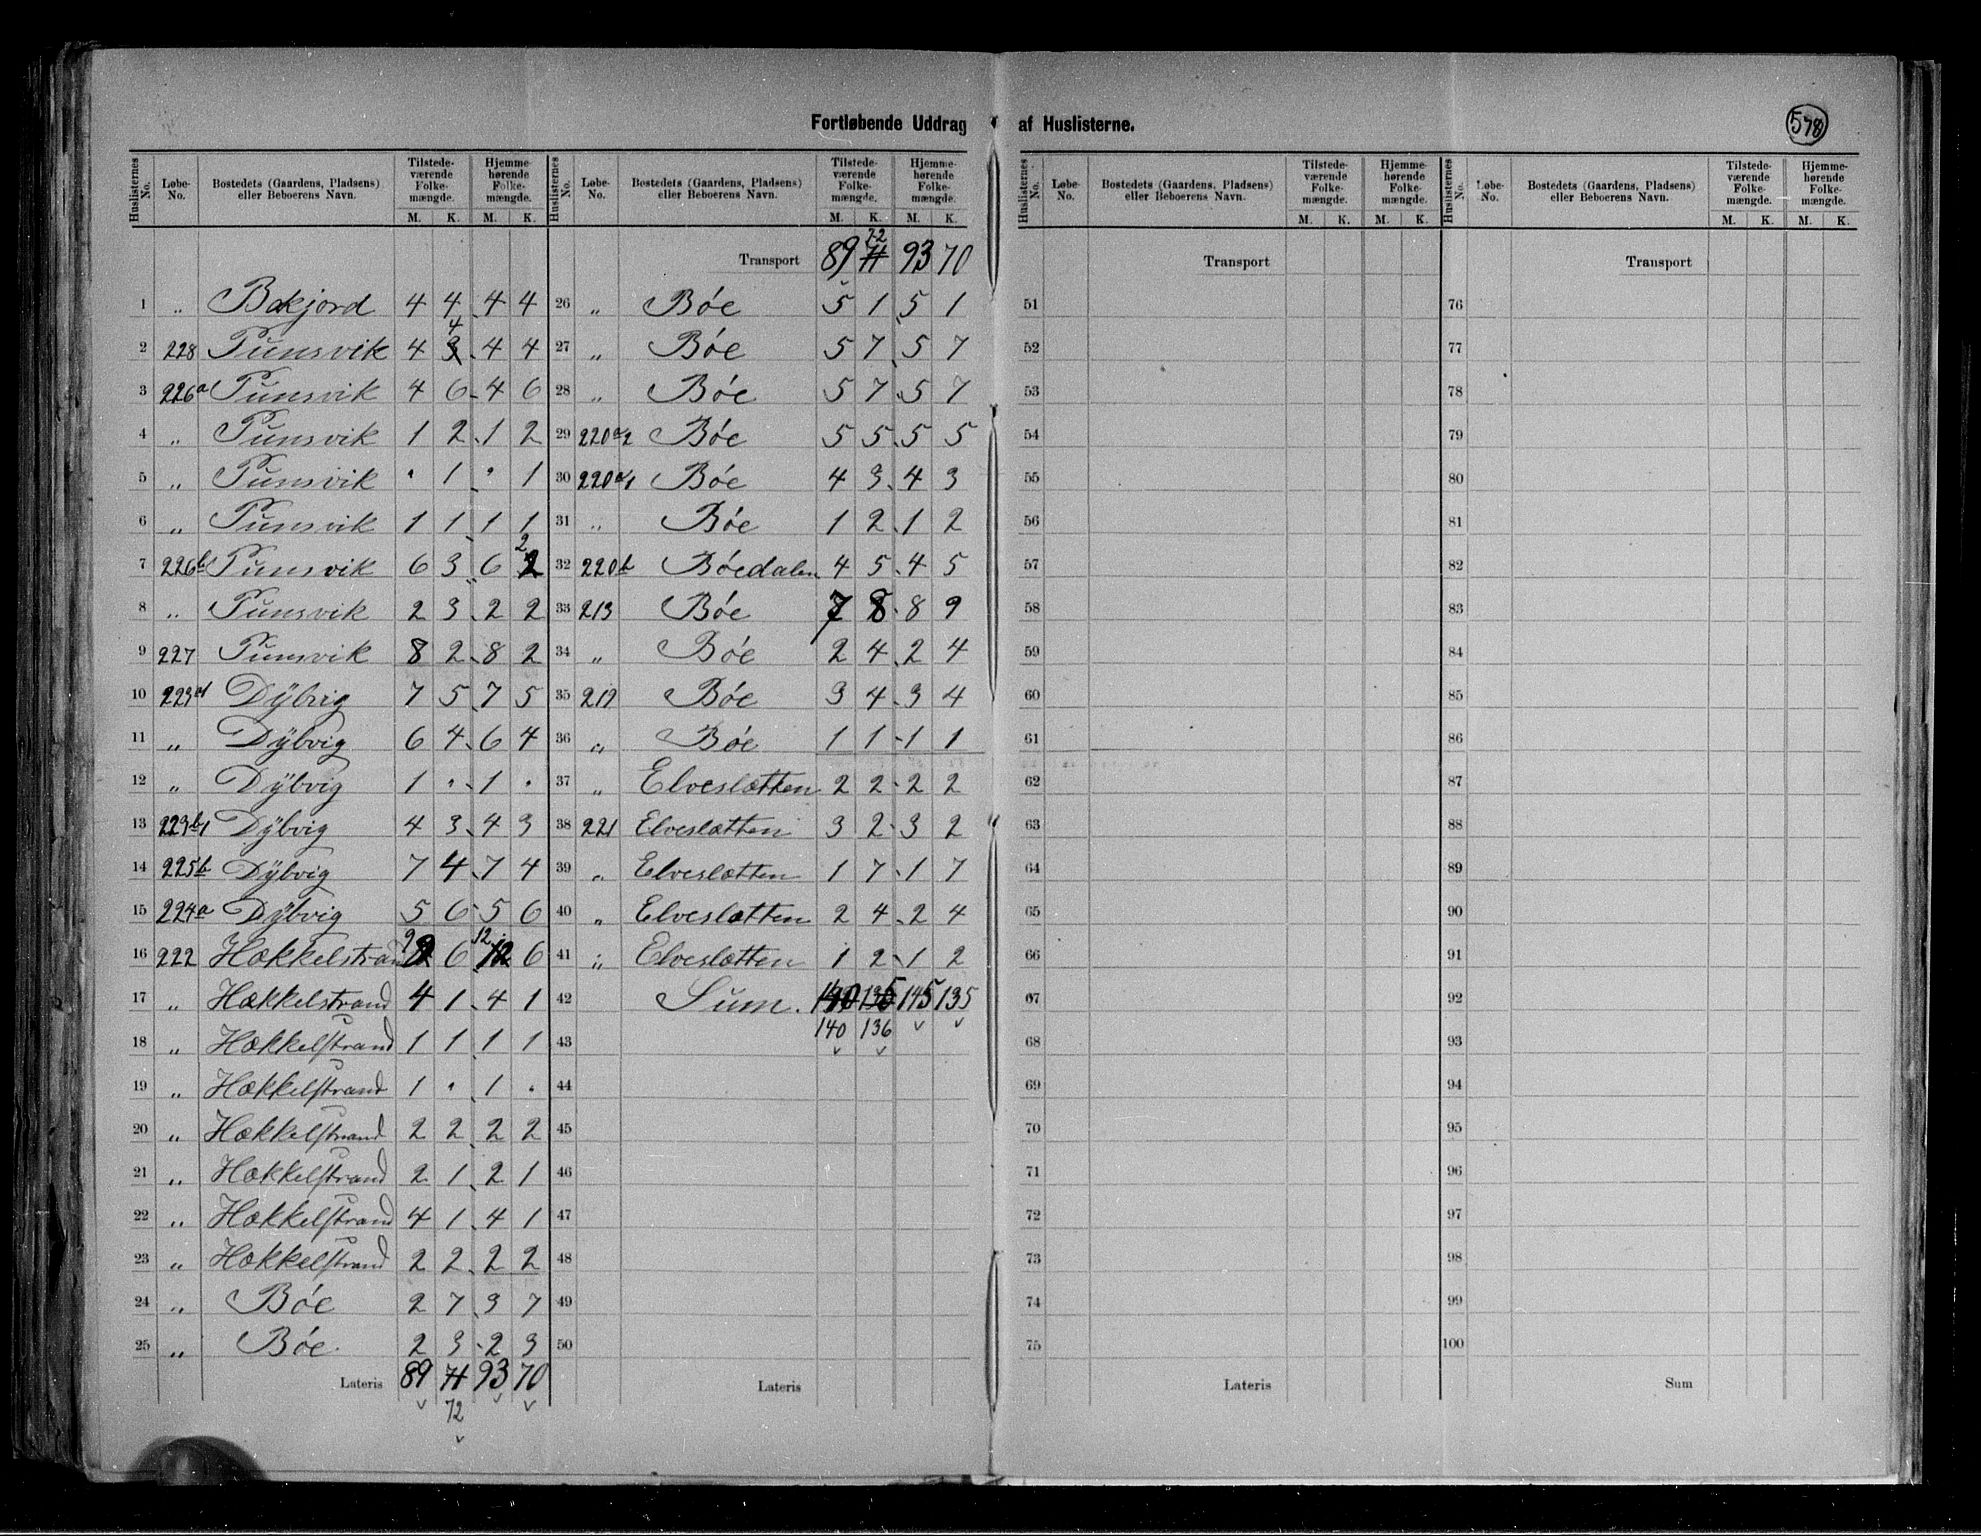 Fortløbende Uddrag af Huslisterne.
578
Huslisternes No. Løbe-No. Bostedets (Gaardens, Pladsens) eller Beboerens Navn. Tilstedeværende Folkemængde. M. K. Hjemmehørende Folkemængde. M. K.
1 „ Bakjord 4 4 4 4
2 228 Punsvik 4 3 4 4 4
3 226a Punsvik 4 6 4 6
4 „ Punsvik 1 2 1 2
5 „ Punsvik " 1 " 1
6 „ Punsvik 1 1 1 1
7 226b Punsvik 6 3 6 2 2
8 „ Punsvik 2 3 2 2
9 227 Punsvik 8 2 8 2
10 223a1 Dÿbvig 7 5 7 5
11 „ Dÿbvig 6 4 6 4
12 „ Dÿbvig 1 " 1 "
13 223b1 Dÿbvig 4 3 4 3
14 225b Dÿbvig 7 4 7 4
15 224a Dÿbvig 5 6 5 6
16 222 Hækkelstrand 9 6 12 12 6
17 „ Hækkelstrand 4 1 4 1
18 „ Hækkelstrand 1 1 1 1
19 „ Hækkelstrand 1 " 1 "
20 „ Hækkelstrand 2 2 2 2
21 „ Hækkelstrand 2 1 2 1
22 „ Hækkelstrand 4 1 4 1
23 „ Hækkelstrand 2 2 2 2
24 „ Bóe 2 7 3 7
25 „ Bóe 2 3 2 3
Lateris 89 71 93 70
72
Huslisternes No. Løbe-No. Bostedets (Gaardens, Pladsens) eller Beboerens Navn. Tilstedeværende Folkemængde. M. K. Hjemmehørende Folkemængde. M. K.
72
Transport 89 71 93 70
26 „ Bóe 5 1 5 1
27 „ Bóe 5 7 5 7
28 „ Bóe 5 7 5 7
29 220a2 Bóe 5 5 5 5
30 220a1 Bóe 4 3 4 3
31 „ Bóe 1 2 1 2
32 220b Bóedalen 4 5 4 5
33 213 Bóe 7 8 8 9
34 „ Bóe 2 4 2 4
35 219 Bóe 3 4 3 4
36 „ Bóe 1 1 1 1
37 „ Elveslætten 2 2 2 2
38 221 Elveslætten 3 2 3 2
39 „ Elveslætten 1 7 1 7
40 „ Elveslætten 2 4 2 4
41 „ Elveslætten 1 2 1 2
42 Sum. 140 135 145 135
43 140 136
44
45
46
47
48
49
50
Lateris
Huslisternes No. Løbe-No. Bostedets (Gaardens, Pladsens) eller Beboerens Navn. Tilstedeværende Folkemængde. M. K. Hjemmehørende Folkemængde. M. K.
Transport
51
52
53
54
55
56
57
58
59
60
61
62
63
64
65
66
67
68
69
70
71
72
73
74
75
Lateris
Huslisternes No. Løbe-No. Bostedets (Gaardens, Pladsens) eller Beboerens Navn. Tilstedeværende Folkemængde. M. K. Hjemmehørende Folkemængde. M. K.
Transport
76
77
78
79
80
81
82
83
84
85
86
87
88
89
90
91
92
93
94
95
96
97
98
99
100
Sum